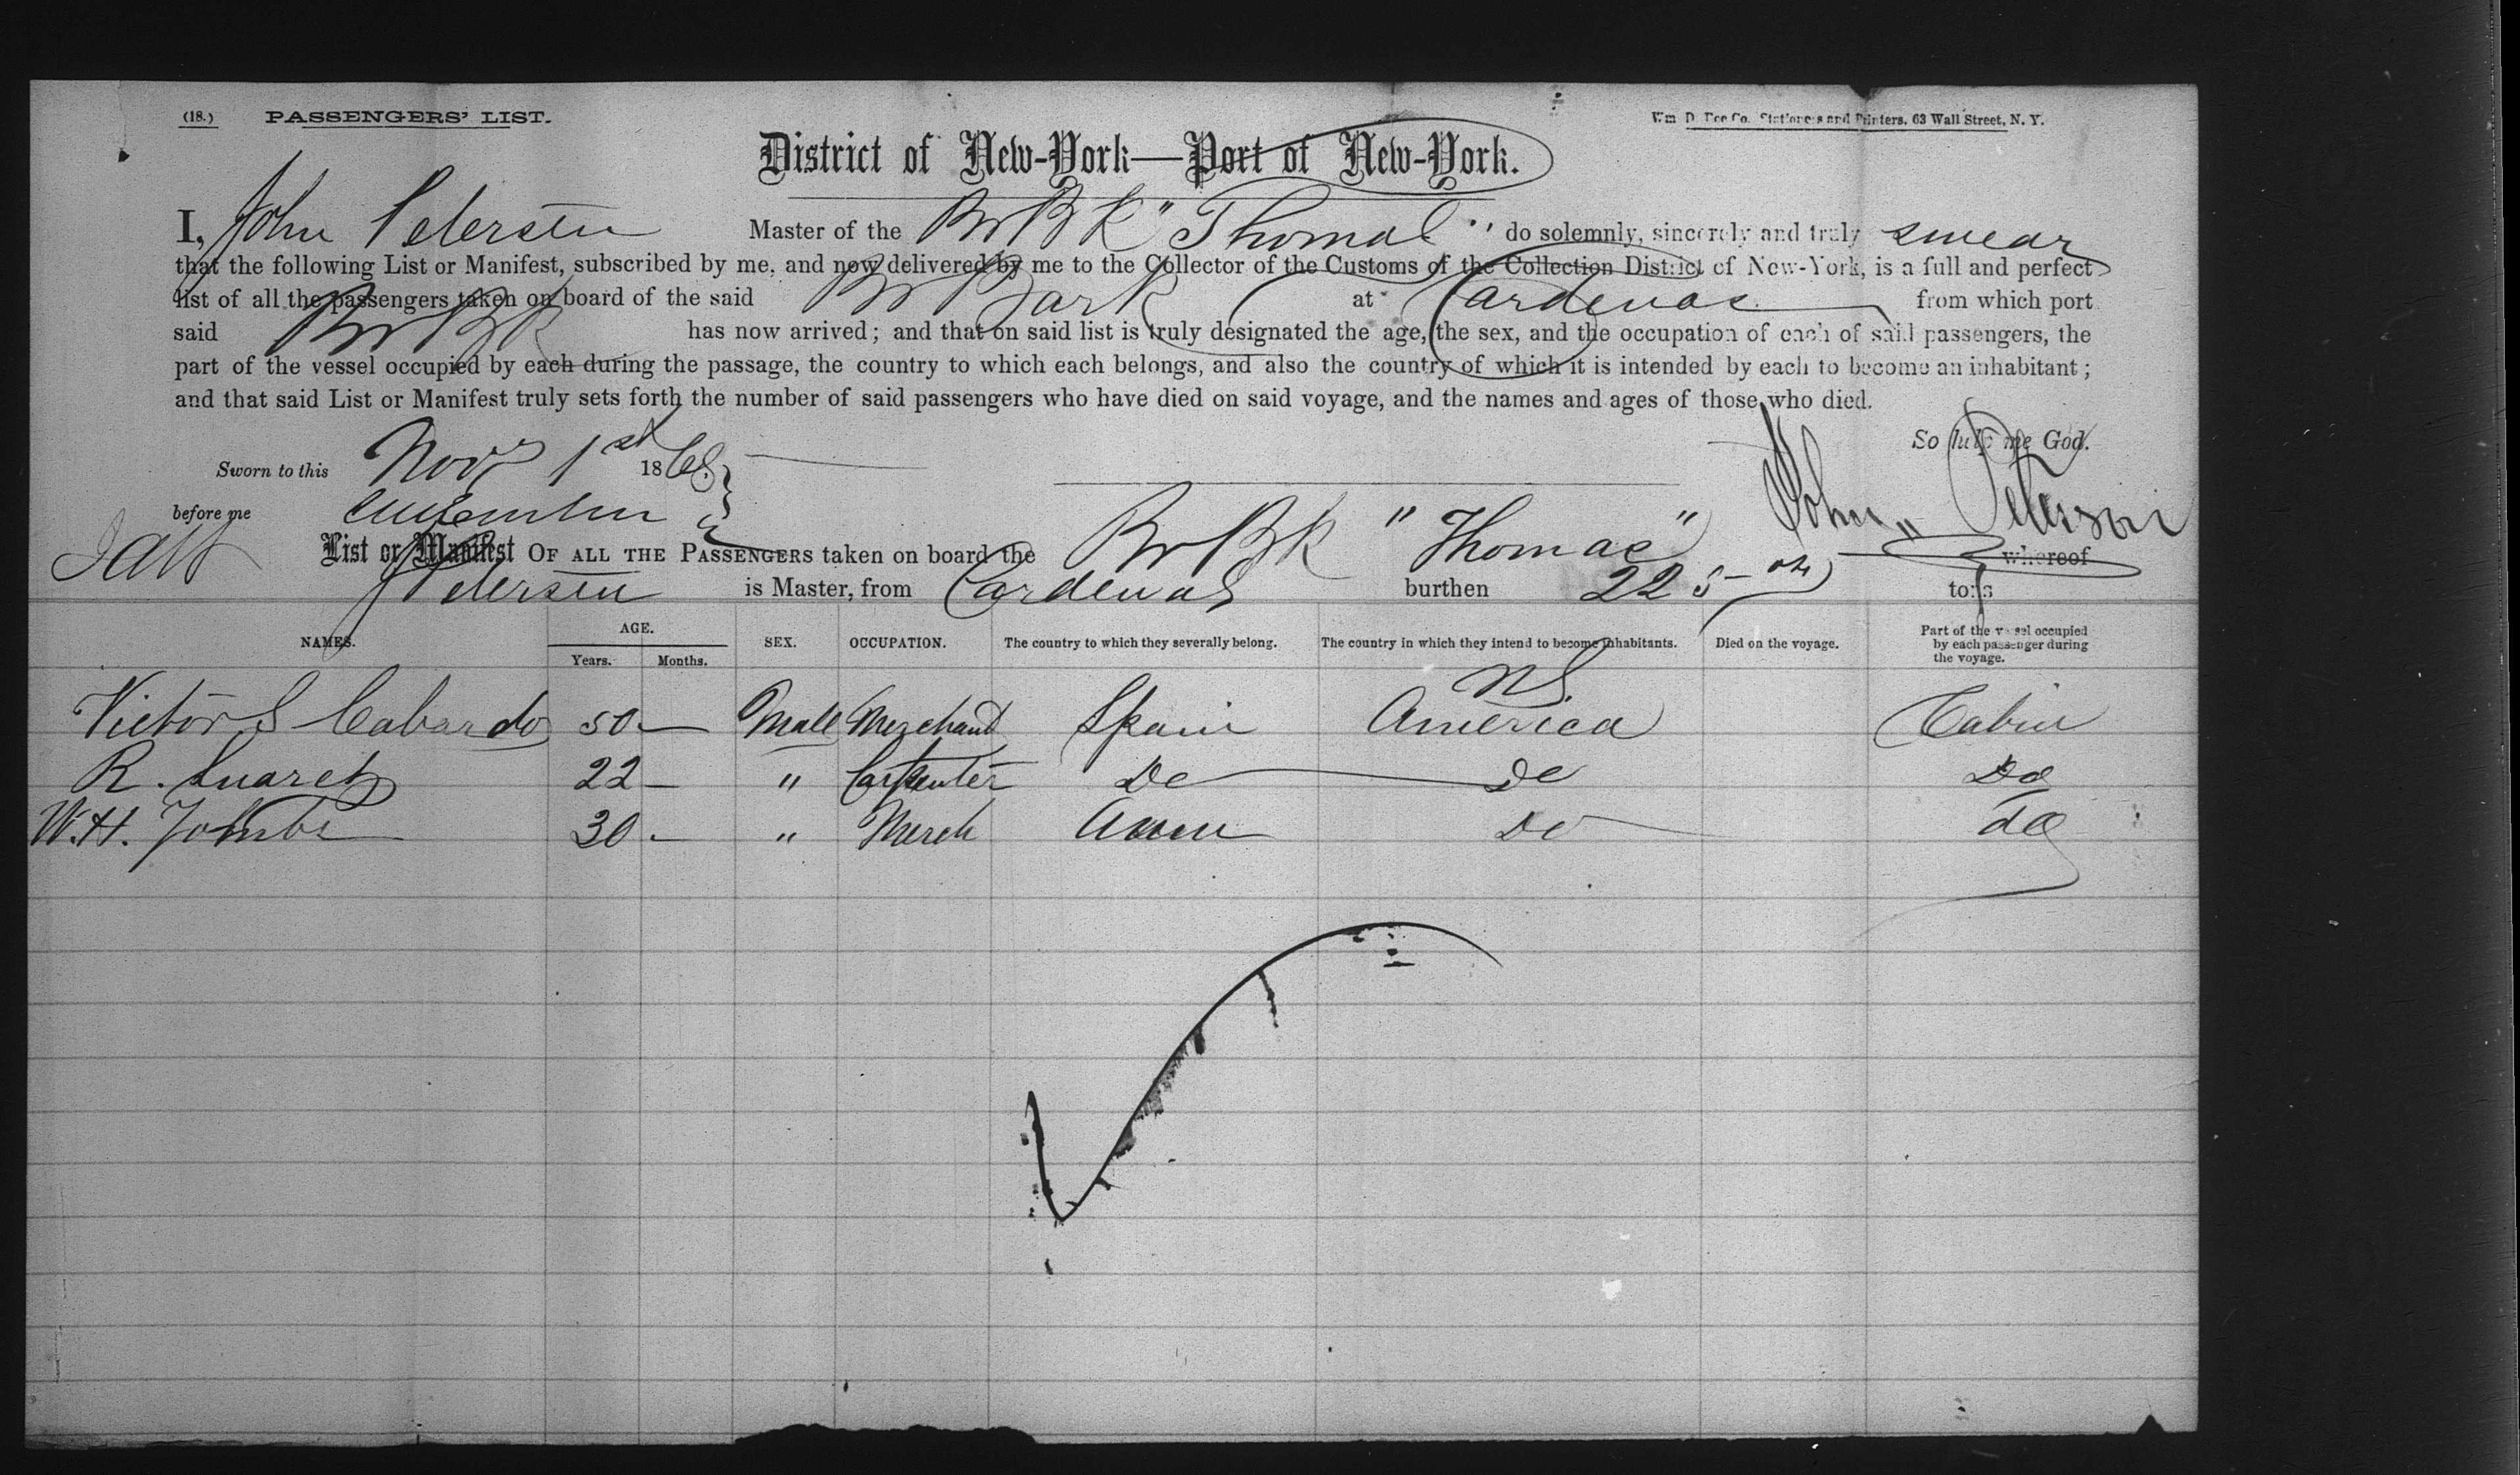 (18.) PASSENGERS' LIST. Wm. D. Roe Co. Stationers and Printers, 63 Wall Street, N. Y.
District of New-York—Port of New-York.
I, John Petersen Master of the Br Bk "Thomas" do solemnly, sincerely and truly swear
that the following List or Manifest, subscribed by me, and now delivered by me to the Collector of the Customs of the Collection District of New-York, is a full and perfect
list of all the passengers taken on board of the said Br Bark at Cardenas from which port
said Br Bk has now arrived; and that on said list is truly designated the age, the sex, and the occupation of each of said passengers, the
part of the vessel occupied by each during the passage, the country to which each belongs, and also the country of which it is intended by each to become an inhabitant;
and that said List or Manifest truly sets forth the number of said passengers who have died on said voyage, and the names and ages of those who died.
So help me God.
Sworn to this Nov 1st 1868
before me John Peterson
List or Manifest OF ALL THE PASSENGERS taken on board the Br Bk "Thomas" whereof
J Petersen is Master, from Cardenas burthen 225 tons
NAMES. AGE. Years. Months. SEX. OCCUPATION. The country to which they severally belong. The country in which they intend to become inhabitants. Died on the voyage. Part of the vessel occupied by each passenger during the voyage.
Victor S Cabardo 50 — Male Merchant Spain America Cabin
R. Suarez 22 — " Carpenter Do Do Do
W. H. Tombs 30 — " Merch Amer Do do